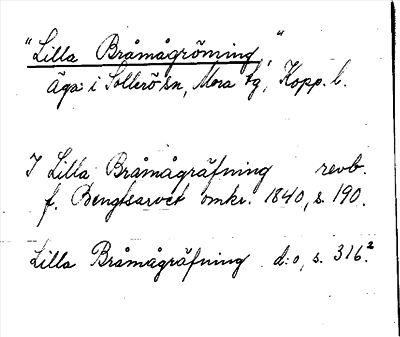 "Lilla Bråmågröming,"
äga i Sollerö sn, Mora tg, Kopp. l.
I Lilla Bråmågräfning revb.
f. Bengtsarvet omkr. 1840, s. 190.
Lilla Bråmågräfning d:o, s. 316.²